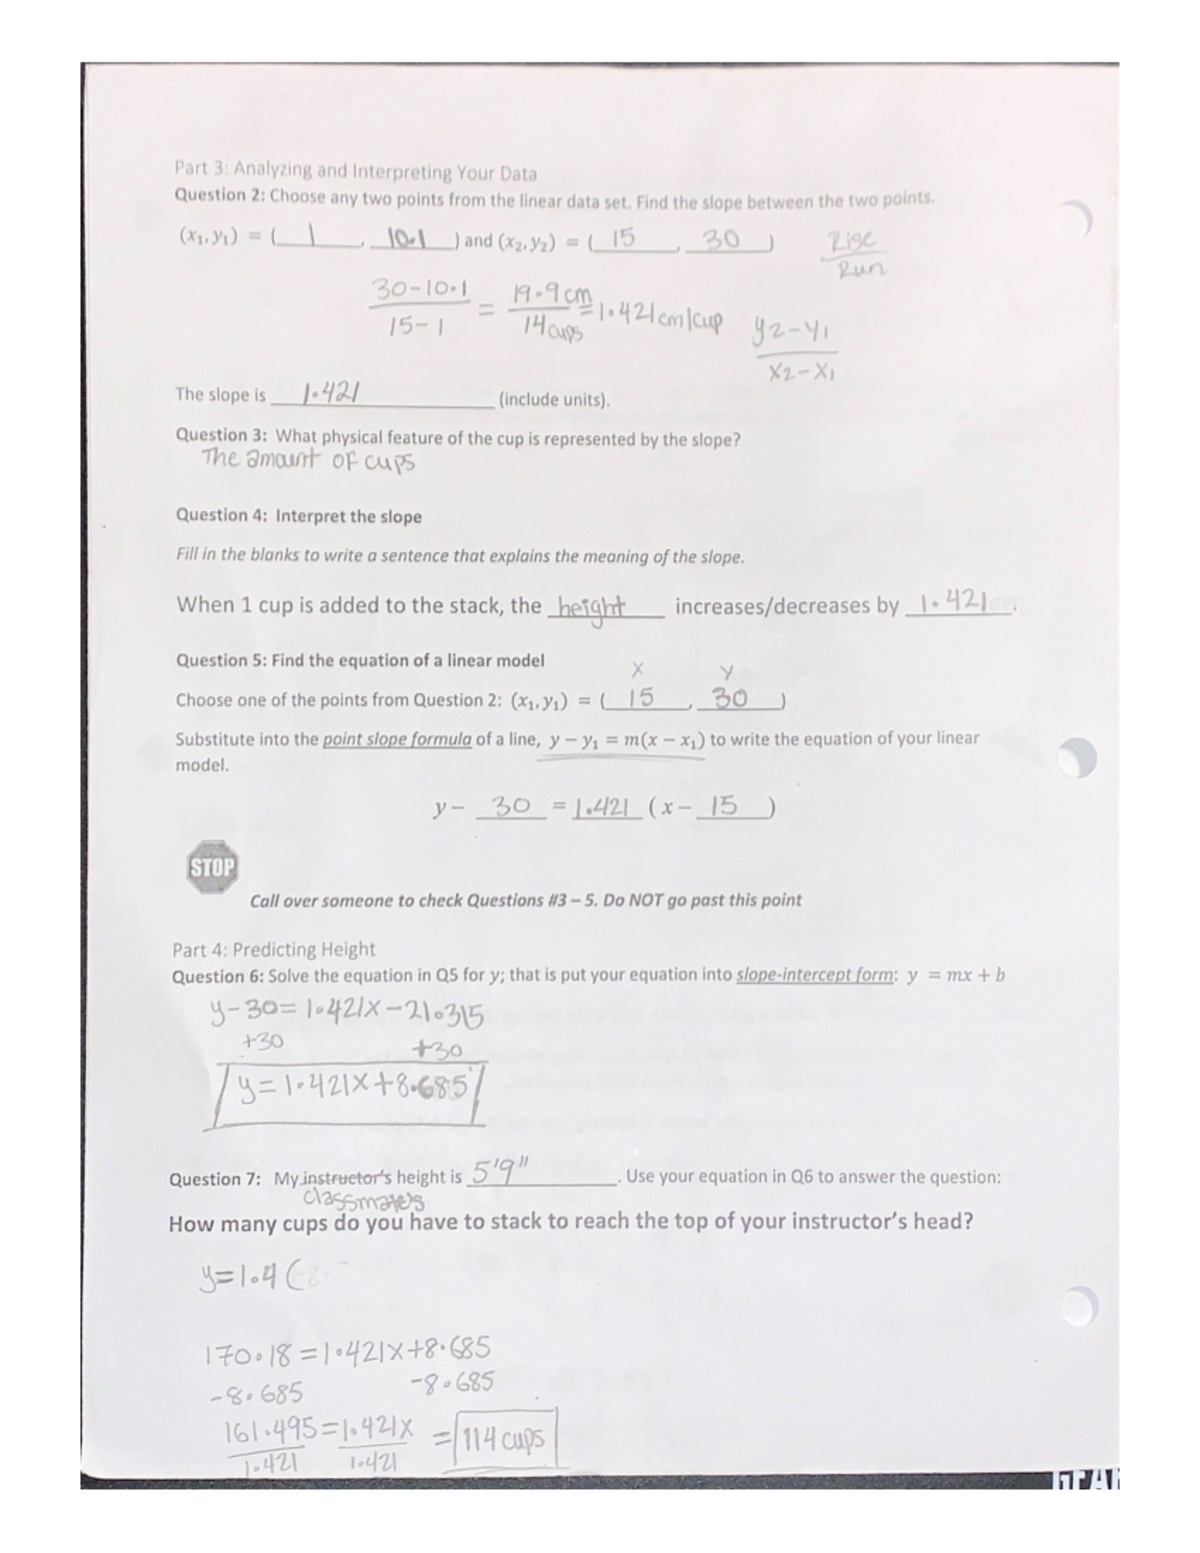 Part 3: Analyzing and Interpreting Your Data
Question 2: Choose any two points from the linear data set. Find the slope between the two points.
(x₁, y₁) = ( 1 , 10.1 ) and (x₂, y₂) = ( 15 , 30 )
Rise
Run
30-10.1 / 15-1 = 19.9cm / 14cups = 1.421cm/cup
y2-y1
x2-x1
The slope is 1.421 (include units).
Question 3: What physical feature of the cup is represented by the slope?
The amount of cups
Question 4: Interpret the slope
Fill in the blanks to write a sentence that explains the meaning of the slope.
When 1 cup is added to the stack, the height increases/decreases by 1.421.
Question 5: Find the equation of a linear model
x y
Choose one of the points from Question 2: (x₁, y₁) = ( 15 , 30 )
Substitute into the point slope formula of a line, y − y₁ = m(x − x₁) to write the equation of your linear
model.
y − 30 = 1.421 (x − 15 )
STOP
Call over someone to check Questions #3 – 5. Do NOT go past this point
Part 4: Predicting Height
Question 6: Solve the equation in Q5 for y; that is put your equation into slope-intercept form: y = mx + b
y-30=1.421x-21.315
+30 +30
y=1.421x+8.685
Question 7: My instructor's height is 5'9". Use your equation in Q6 to answer the question:
classmates
How many cups do you have to stack to reach the top of your instructor's head?
y=1.4(
170.18=1.421x+8.685
-8.685 -8.685
161.495=1.421x =114 cups
1.421 1.421